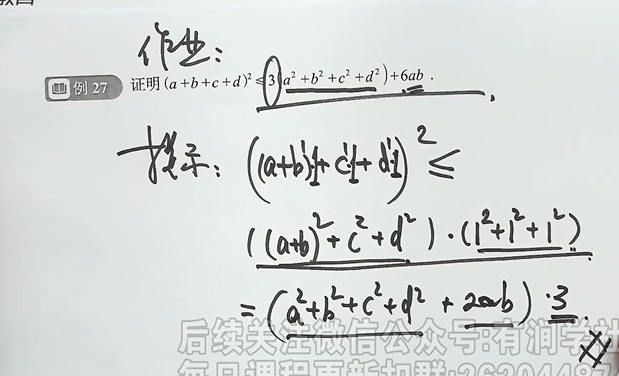 作业:
例 27 证明 (a+b+c+d)² ≤ 3(a²+b²+c²+d²)+6ab .
提示: ((a+b)·1+c·1+d·1)² ≤
((a+b)²+c²+d²)·(1²+1²+1²)
=(a²+b²+c²+d²+2ab)·3.
后续关注微信公众号:有润学社